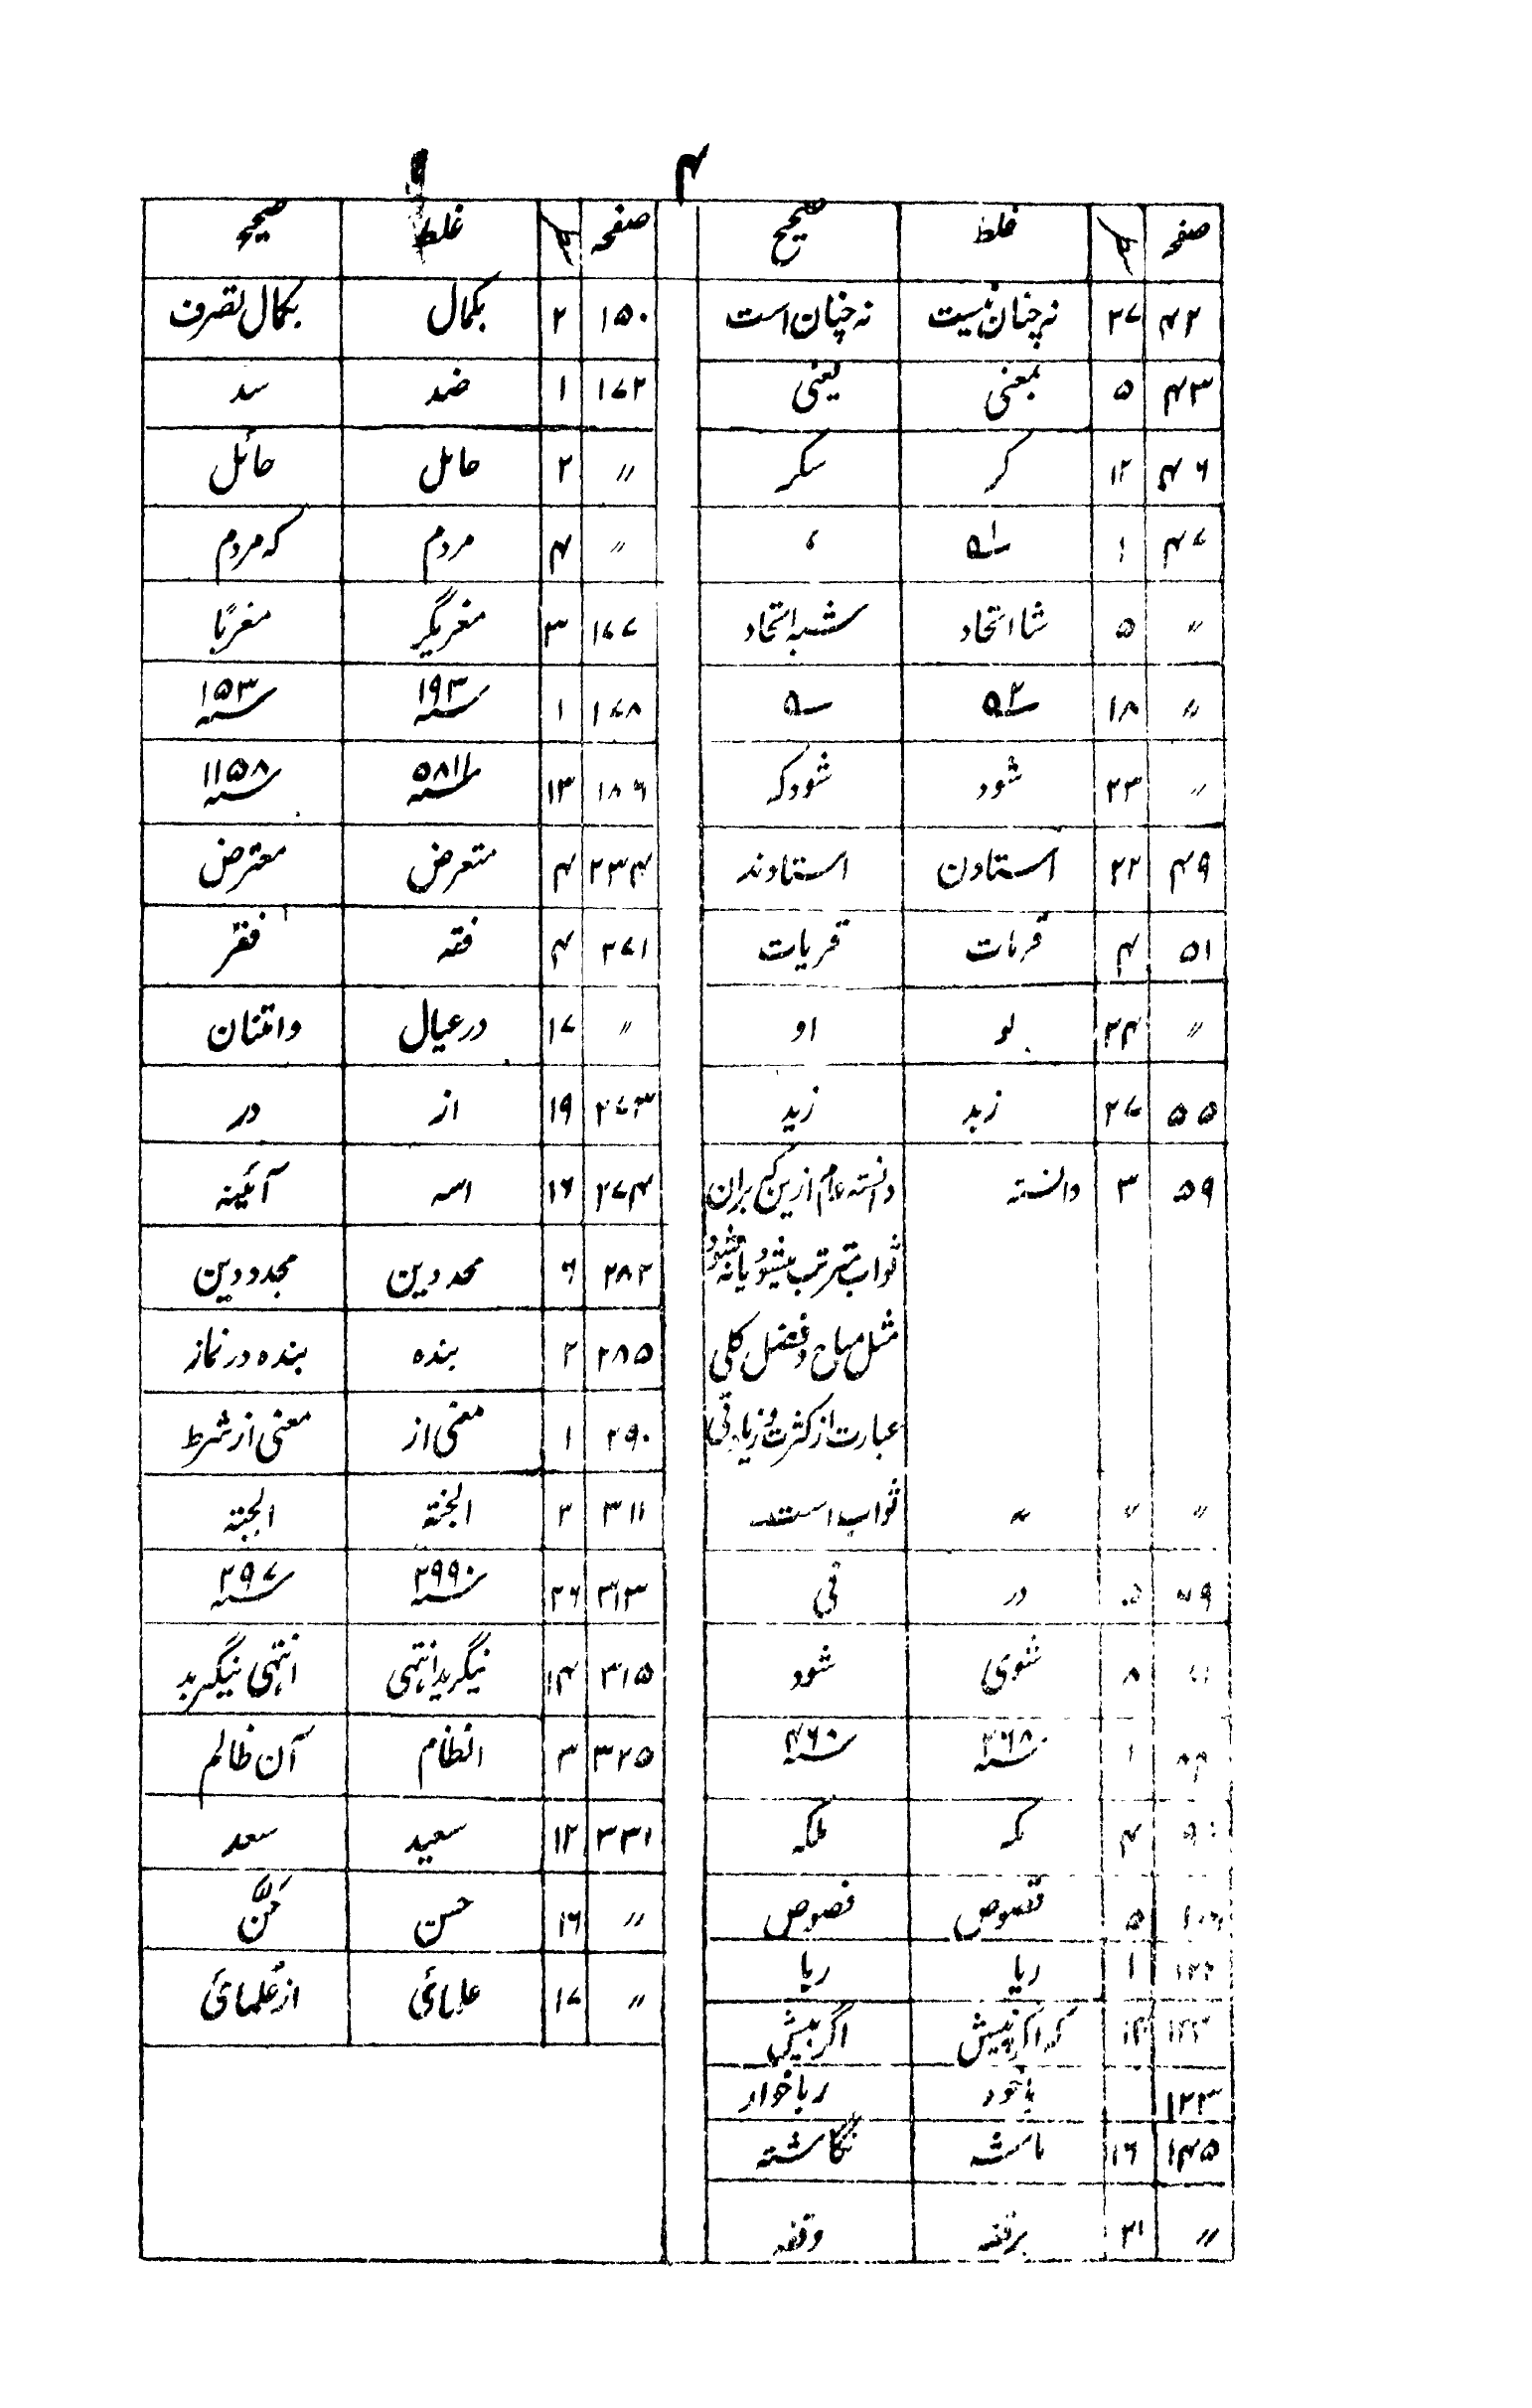 ۴
صفحہ سطر غلط صحیح
۴۲ ۲۷ نہ چنان نیست نہ چنان است
۴۳ ۵ بمعنی یعنی
۴۶ ۱۲ کر سکر
۴۷ ۱ ،
〃 ۵ شا اتحاد شبہ اتحاد
〃 ۱۸
〃 ۲۳ شود شود کہ
۴۹ ۲۲ استادن استادند
۵۱ ۴ قربات قریات
〃 ۲۴ لو او
۵۵ ۲۷ زبد زید
۵۹ ۳ دانستہ دانستہ عام ازین کہ بران
ثواب مترتب میشود یا نہ میشود
مثل مباح و فضل کلی
عبارت از کثرت و زیادتی
〃 〃 〃 ثواب است
۵ در فی
۸ شوی شود
۱ ۳۶۸ سنہ ۴۶۰ سنہ
۴ مکہ ملکہ
۵ قصوص فصوص
۱ ریا ربا
کہ اگر بیش اگر بیش
۱۲۳ باخود ربا خوار
۱۴۵ ۱۶ ماشتہ نگاشتہ
〃 ۲۱ برقفہ وقفہ
صفحہ سطر غلط صحیح
۱۵۰ ۲ بکمال بکمال تصرف
۱۷۲ ۱ ضد سد
〃 ۲ حامل حائل
〃 ۴ مردم کہ مردم
۱۷۷ ۳ مغربگر مغربًا
۱۷۸ ۱ ۱۹۳ سنہ ۱۵۳ سنہ
۱۸۶ ۱۳ ۵۸۱۱ سنہ ۱۱۵۸ سنہ
۲۳۴ ۴ متعرض معترض
۲۷۱ ۴ فقہ فقر
〃 ۱۷ در عیال وامتنان
۲۷۳ ۱۹ از در
۲۷۴ ۱۶ اسہ آئینہ
۲۸۲ ۶ محددین مجددین
۲۸۵ ۲ بندہ بندہ در نماز
۲۹۰ ۱ معنی از معنی از شرط
۳۱۱ ۲ الجنۃ الجبۃ
۳۱۳ ۲۶ ۲۹۹۰ سنہ ۲۹۷ سنہ
۳۱۵ ۱۴ نیگرید انتہی انتہی نیگرید
۳۲۵ ۳ انظام آن ظالم
۳۳۱ ۱۲ سعید سعد
〃 ۱۶ حسن
〃 ۱۷ علمائ از علمائ